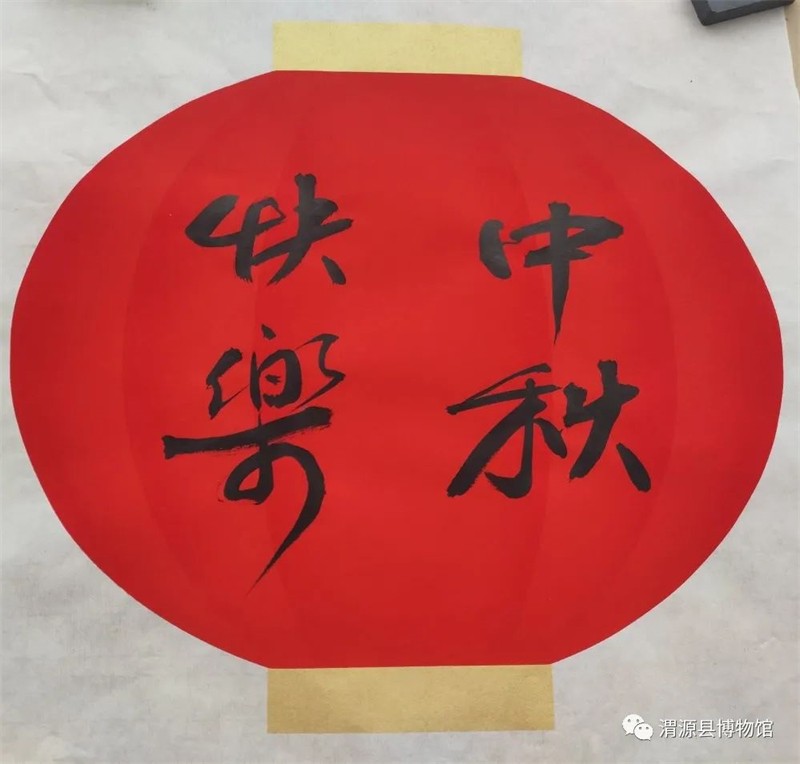 中秋
快樂
渭源县博物馆